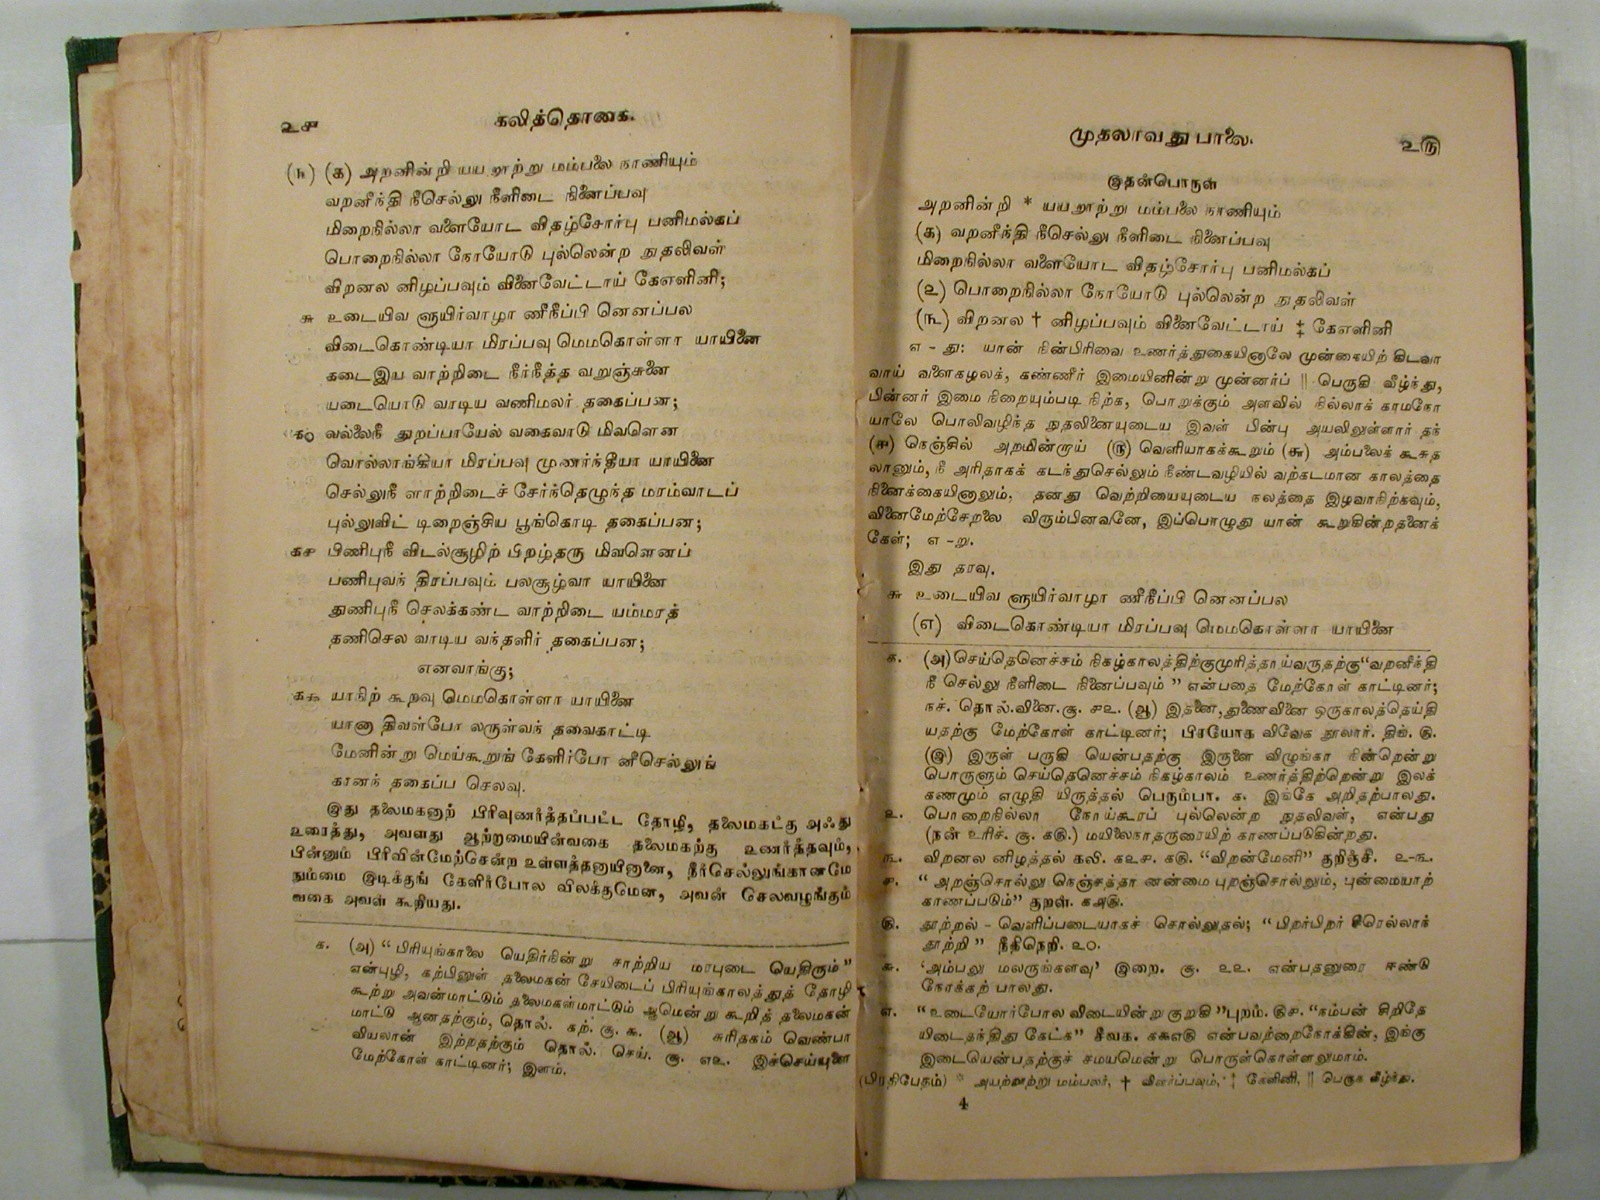 உச
கலித்தொகை.
(௩) (க) அறனின்றி யயறூற்று மம்பலை நாணியும்
வறனீந்தி நீசெல்லு நீளிடை நினைப்பவு
மிறைநில்லா வளையோட விதழ்சோர்பு பனிமல்கப்
பொறைநில்லா நோயோடு புல்லென்ற நுதலிவள்
விறனல னிழப்பவும் வினைவேட்டாய் கேஎளினி;
௬ உடையிவ ளுயிர்வாழா ணீநீப்பி னெனப்பல
விடைகொண்டியா மிரப்பவு மெமகொள்ளா யாயினை
கடைஇய வாற்றிடை நீர்நீத்த வறுஞ்சுனை
யடையொடு வாடிய வணிமலர் தகைப்பன;
க௦ வல்லைநீ துறப்பாயேல் வகைவாடு மிவளென
வொல்லாங்கியா மிரப்பவு முணர்ந்தீயா யாயினை
செல்லுநீ ளாற்றிடைச் சேர்ந்தெழுந்த மரம்வாடப்
புல்லுவிட் டிறைஞ்சிய பூங்கொடி தகைப்பன;
கச பிணிபுநீ விடல்சூழிற் பிறழ்தரு மிவளெனப்
பணிபுவந் திரப்பவும் பலசூழ்வா யாயினை
துணிபுநீ செலக்கண்ட வாற்றிடை யம்மரத்
தணிசெல வாடிய வந்தளிர் தகைப்பன;
எனவாங்கு;
ககூ யாநிற் கூறவு மெமகொள்ளா யாயினை
யானா திவள்போ லருள்வந் தவைகாட்டி
மேனின்று மெய்கூறுங் கேளிர்போ னீசெல்லுங்
கானந் தகைப்ப செலவு.
இது தலைமகனாற் பிரிவுணர்த்தப்பட்ட தோழி, தலைமகட்கு அஃது
உரைத்து, அவளது ஆற்றாமையின்வகை தலைமகற்கு உணர்த்தவும்,
பின்னும் பிரிவின்மேற்சென்ற உள்ளத்தனாயினானை, நீர்செல்லுங்கானமே
நும்மை இடிக்குங் கேளிர்போல விலக்குமென, அவன் செலவழுங்கும்
வகை அவள் கூறியது.
க. (அ) “பிரியுங்காலை யெதிர்நின்று சாற்றிய மரபுடை யெதிரும்”
என்புழி, கற்பினுள் தலைமகன் சேயிடைப் பிரியுங்காலத்துத் தோழி
கூற்று அவன்மாட்டும் தலைமகள்மாட்டும் ஆமென்று கூறித் தலைமகன்
மாட்டு ஆனதற்கும், தொல். கற். சூ. ௯. (ஆ) சுரிதகம் வெண்பா
வியலான் இற்றதற்கும் தொல். செய். சூ. எஉ. இச்செய்யுளை
மேற்கோள் காட்டினர்; இளம்.
முதலாவது பாலை.
உரு
இதன்பொருள்
அறனின்றி * யயறூற்று மம்பலை நாணியும்
(க) வறனீந்தி நீசெல்லு நீளிடை நினைப்பவு
மிறைநில்லா வளையோட விதழ்சோர்பு பனிமல்கப்
(உ) பொறைநில்லா நோயோடு புல்லென்ற நுதலிவள்
(௩) விறனல † னிழப்பவும் வினைவேட்டாய் ‡ கேஎளினி
எ - து: யான் நின்பிரிவை உணர்த்துகையினாலே முன்கையிற் கிடவா
வாய் வளைகழலக், கண்ணீர் இமையினின்று முன்னர்ப் || பெருகி வீழ்ந்து,
பின்னர் இமை நிறையும்படி நிற்க, பொறுக்கும் அளவில் நில்லாக் காமநோ
யாலே பொலிவழிந்த நுதலினையுடைய இவள் பின்பு அயலிலுள்ளார் தந்
(ச) நெஞ்சில் அறமின்றாய் (ரு) வெளியாகக்கூறும் (௬) அம்பலைக் கூசுத
லானும், நீ அரிதாகக் கடந்துசெல்லும் நீண்டவழியில் வற்கடமான காலத்தை
நினைக்கையினாலும், தனது வெற்றியையுடைய நலத்தை இழவாநிற்கவும்,
வினைமேற்சேறலை விரும்பினவனே, இப்பொழுது யான் கூறுகின்றதனைக்
கேள்; எ -று.
இது தரவு.
௬ உடையிவ ளுயிர்வாழா ணீநீப்பி னெனப்பல
(எ) விடைகொண்டியா மிரப்பவு மெமகொள்ளா யாயினை
க. (அ)செய்தெனெச்சம் நிகழ்காலத்திற்குமுரித்தாய்வருதற்கு“வறனீந்தி
நீ செல்லு நீளிடை நினைப்பவும்” என்பதை மேற்கோள் காட்டினர்;
நச். தொல்.வினை.சூ. சஉ. (ஆ) இதனை,துணைவினை ஒருகாலத்தெய்தி
யதற்கு மேற்கோள் காட்டினர்; பிரயோக விவேக நூலார். திங். ரு.
(இ) இருள் பருகி யென்பதற்கு இருளை விழுங்கா நின்றென்று
பொருளும் செய்தெனெச்சம் நிகழ்காலம் உணர்த்திற்றென்று இலக்
கணமும் எழுதி யிருத்தல் பெரும்பா. க. இங்கே அறிதற்பாலது.
உ. பொறைநில்லா நோய்கூரப் புல்லென்ற நுதலிவள், என்பது
(நன் உரிச். சூ. கரு.) மயிலைநாதருரையிற் காணப்படுகின்றது.
௩. விறனல னிழத்தல் கலி. கஉச. கரு. “விறன்மேனி” குறிஞ்சி. உ-௩.
ச. “அறஞ்சொல்லு நெஞ்சத்தா னன்மை புறஞ்சொல்லும், புன்மையாற்
காணப்படும்” குறள். கஅரு.
ரு. தூற்றல் - வெளிப்படையாகச் சொல்லுதல்; “பிறர்பிறர் சீரெல்லாந்
தூற்றி” நீதிநெறி. உ௦.
௬. ‘அம்பலு மலருங்களவு’ இறை. சூ. உஉ. என்பதனுரை ஈண்டு
நோக்கற் பாலது.
எ. “உடையோர்போல விடையின்று குறுகி”புறம். ருச. “நம்பன் சிறிதே
யிடைதந்திது கேட்க” சீவக. க௬எரு என்பவற்றைநோக்கின், இங்கு
இடையென்பதற்குச் சமயமென்று பொருள்கொள்ளலுமாம்.
(பிரதிபேதம்) * அயற்றூற்று மம்பலர், † விளர்ப்பவும், ‡ கேளினி, || பெருக வீழ்ந்து.
4